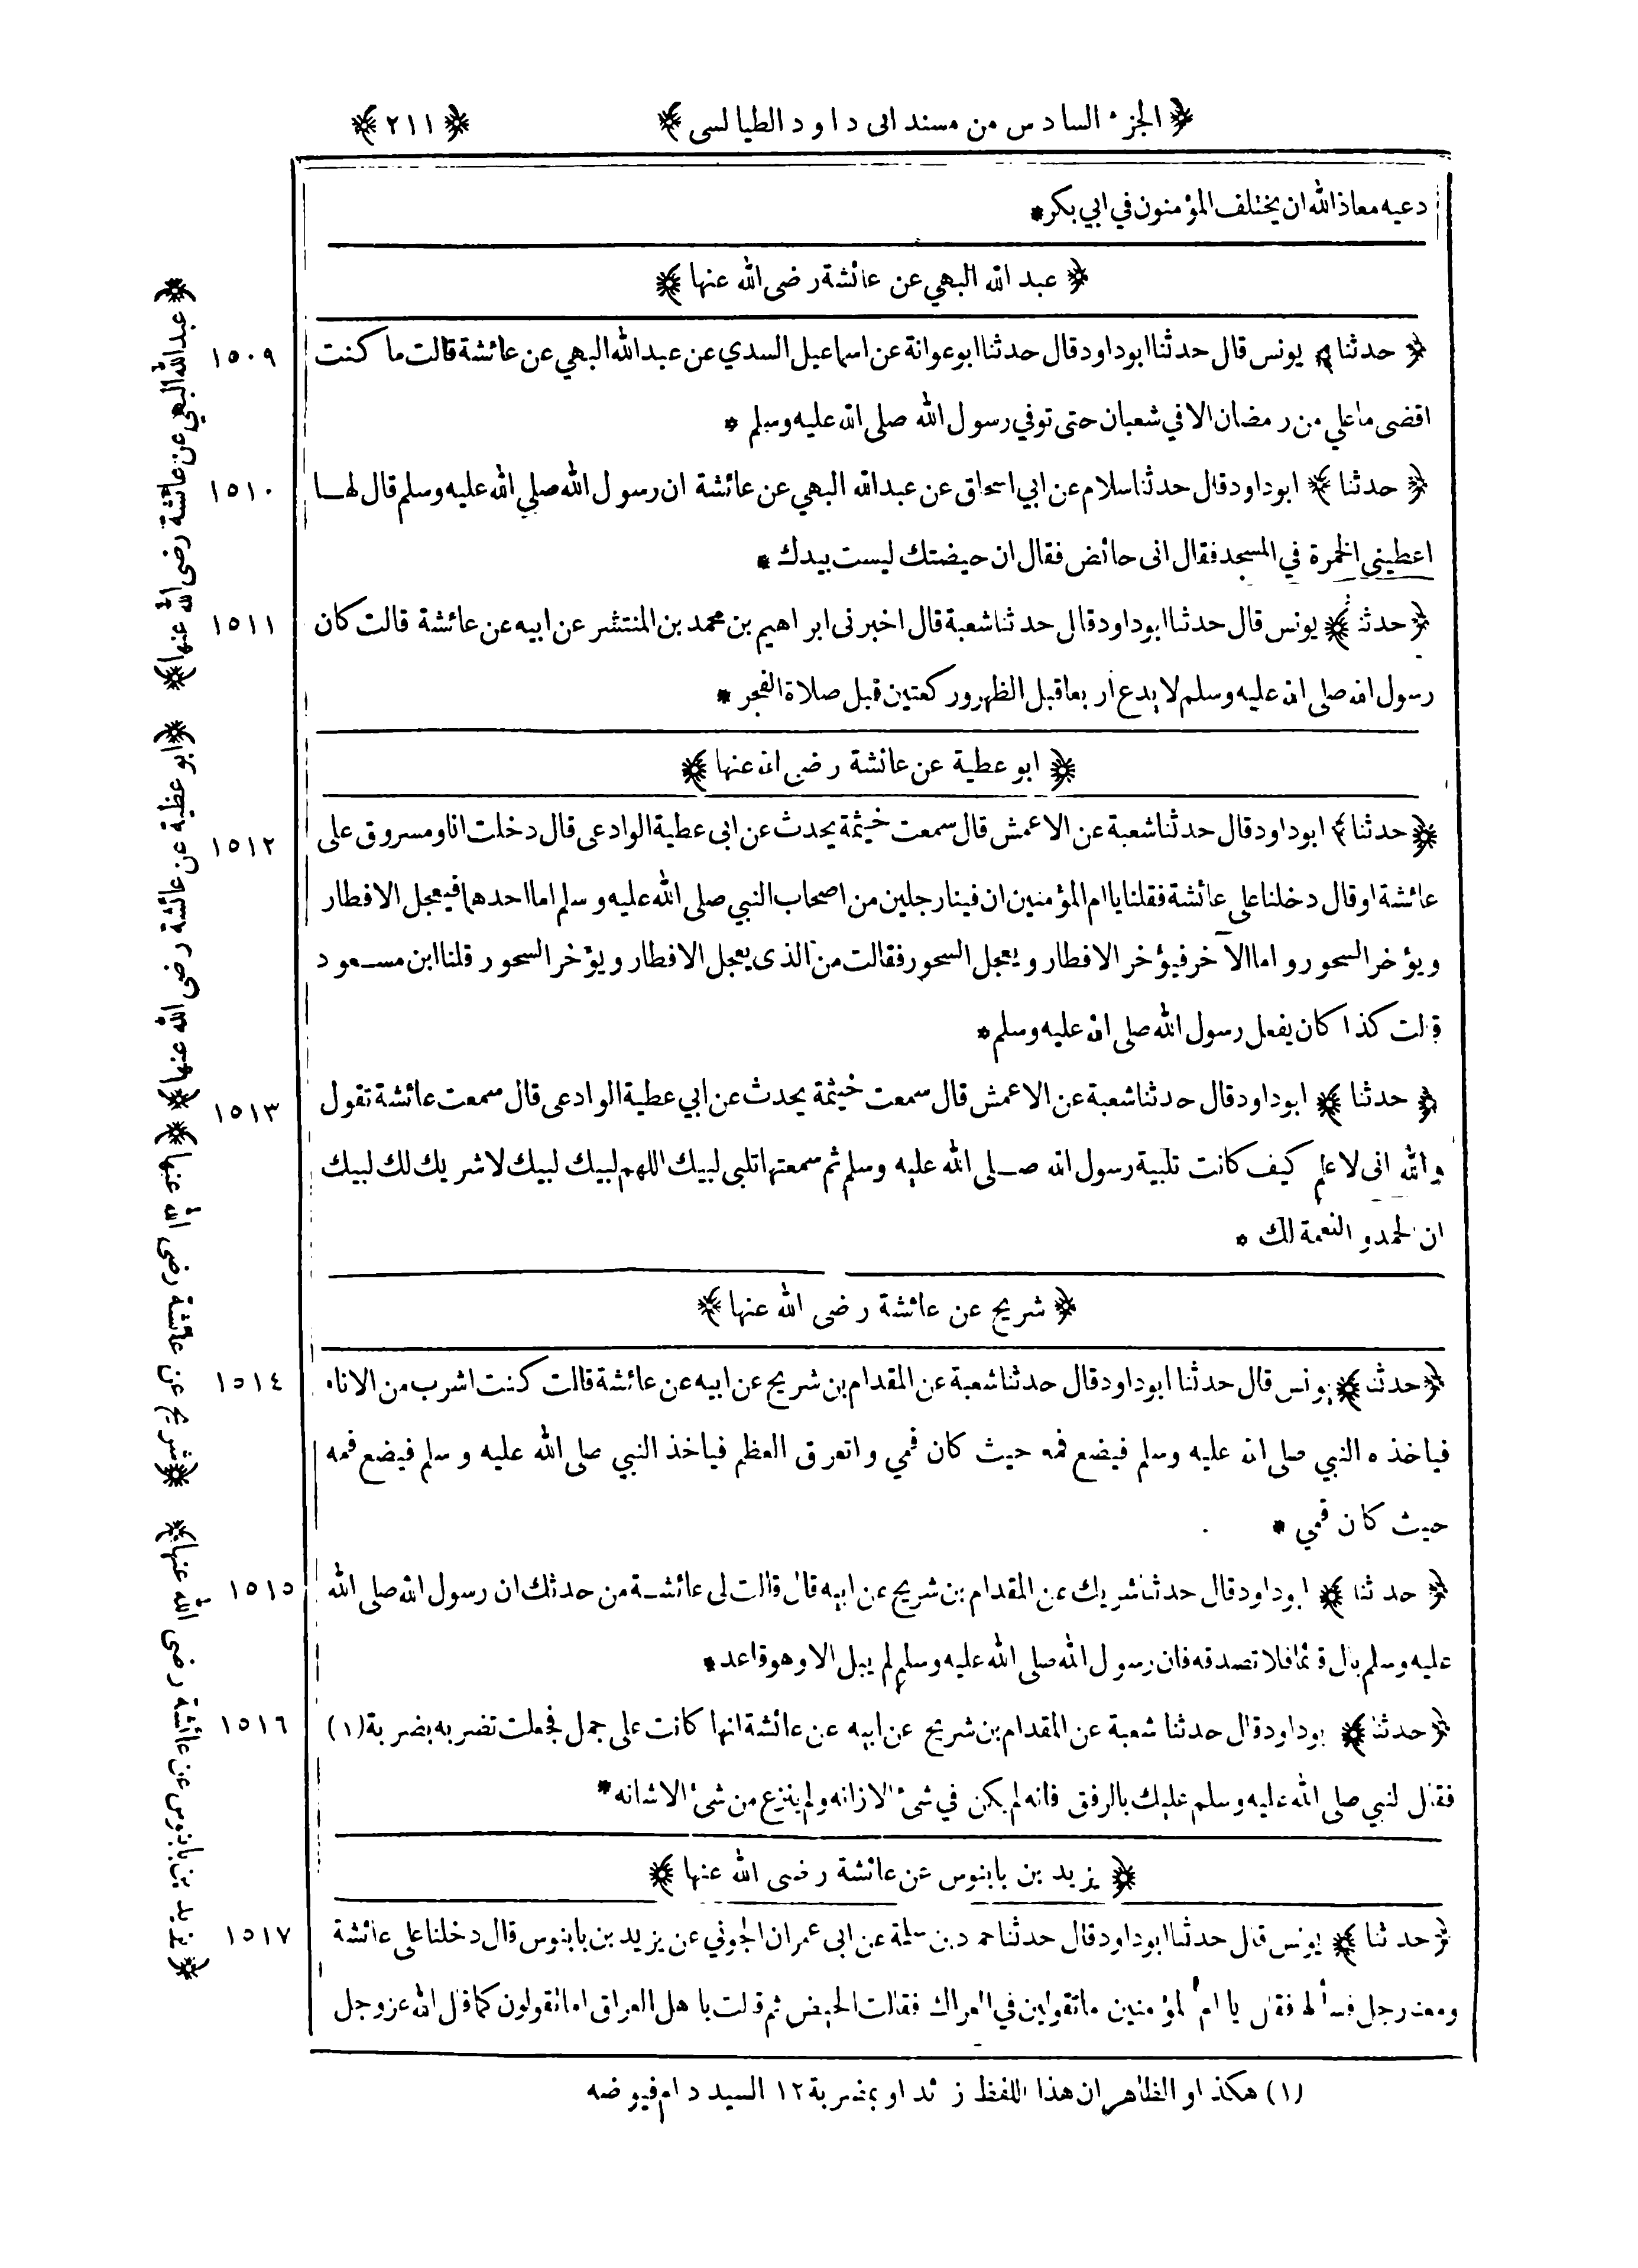 ﴿ الجزء السادس من مسند ابى داود الطيالسى ﴾ ﴿ ٢١١ ﴾
دعيه معاذ الله ان يختلف المؤمنون في ابي بكر *
﴿ عبد الله البهي عن عائشة رضى الله عنها ﴾
١٥٠٩ ﴿ حدثنا ﴾ يونس قال حدثنا ابو داود قال حدثنا ابو عوانة عن اسماعيل السدي عن عبد الله البهي عن عائشة قالت ما كنت
اقضى ما علي من رمضان الا في شعبان حتى توفي رسول الله صلى الله عليه وسلم *
١٥١٠ ﴿ حدثنا ﴾ ابو داود قال حدثنا سلام عن ابي اسحاق عن عبد الله البهي عن عائشة ان رسول الله صلى الله عليه وسلم قال لها
اعطينى الخمرة في المسجد فقال انى حائض فقال ان حيضتك ليست بيدك *
١٥١١ ﴿ حدثنا ﴾ يونس قال حدثنا ابو داود قال حدثنا شعبة قال اخبرنى ابراهيم بن محمد بن المنتشر عن ابيه عن عائشة قالت كان
رسول الله صلى الله عليه وسلم لا يدع اربعا قبل الظهر وركعتين قبل صلاة الفجر *
﴿ ابو عطية عن عائشة رضى الله عنها ﴾
١٥١٢ ﴿ حدثنا ﴾ ابو داود قال حدثنا شعبة عن الاعمش قال سمعت خيثمة يحدث عن ابى عطية الوادعى قال دخلت انا ومسروق على
عائشة او قال دخلنا على عائشة فقلنا يا ام المؤمنين ان فينا رجلين من اصحاب النبي صلى الله عليه وسلم اما احدهما فيعجل الافطار
ويؤخر السحور واما الآخر فيؤخر الافطار ويعجل السحور فقالت من الذى يعجل الافطار ويؤخر السحور قلنا ابن مسعود
قالت كذا كان يفعل رسول الله صلى الله عليه وسلم *
١٥١٣ ﴿ حدثنا ﴾ ابو داود قال حدثنا شعبة عن الاعمش قال سمعت خيثمة يحدث عن ابي عطية الوادعى قال سمعت عائشة تقول
والله انى لاعلم كيف كانت تلبية رسول الله صلى الله عليه وسلم ثم سمعتها تلبى لبيك اللهم لبيك لبيك لا شريك لك لبيك
ان الحمد والنعمة لك *
﴿ شريح عن عائشة رضى الله عنها ﴾
١٥١٤ ﴿ حدثنا ﴾ يونس قال حدثنا ابو داود قال حدثنا شعبة عن المقدام بن شريح عن ابيه عن عائشة قالت كنت اشرب من الاناء
فياخذه النبي صلى الله عليه وسلم فيضع فمه حيث كان فمي واتعرق العظم فياخذ النبي صلى الله عليه وسلم فيضع فمه
حيث كان فمي *
١٥١٥ ﴿ حدثنا ﴾ ابو داود قال حدثنا شريك عن المقدام بن شريح عن ابيه قال قالت لى عائشة من حدثك ان رسول الله صلى الله
عليه وسلم بال قائما فلا تصدقه فان رسول الله صلى الله عليه وسلم لم يبل الا وهو قاعد *
١٥١٦ ﴿ حدثنا ﴾ ابو داود قال حدثنا شعبة عن المقدام بن شريح عن ابيه عن عائشة انها كانت على جمل فجعلت تضربه بضربة (١)
فقال النبي صلى الله عليه وسلم عليك بالرفق فانه لم يكن في شئ الا زانه ولم ينزع من شئ الا شانه *
﴿ يزيد بن بابنوس عن عائشة رضى الله عنها ﴾
١٥١٧ ﴿ حدثنا ﴾ يونس قال حدثنا ابو داود قال حدثنا حماد بن سلمة عن ابى عمران الجوني عن يزيد بن بابنوس قال دخلنا على عائشة
ومعنا رجل فسألها فقال يا ام المؤمنين ما تقولين في العراك فقالت الحيض ثم قالت يا اهل العراق اما تقولون كما قال الله عز وجل
(١) هكذا والظاهر ان هذا اللفظ زائد او بمضربة ١٢ السيد دام فيوضه
﴿ عبد الله البهي عن عائشة رضى الله عنها ﴾
﴿ ابو عطية عن عائشة رضى الله عنها ﴾
﴿ شريح عن عائشة رضى الله عنها ﴾
﴿ يزيد بن بابنوس عن عائشة رضى الله عنها ﴾